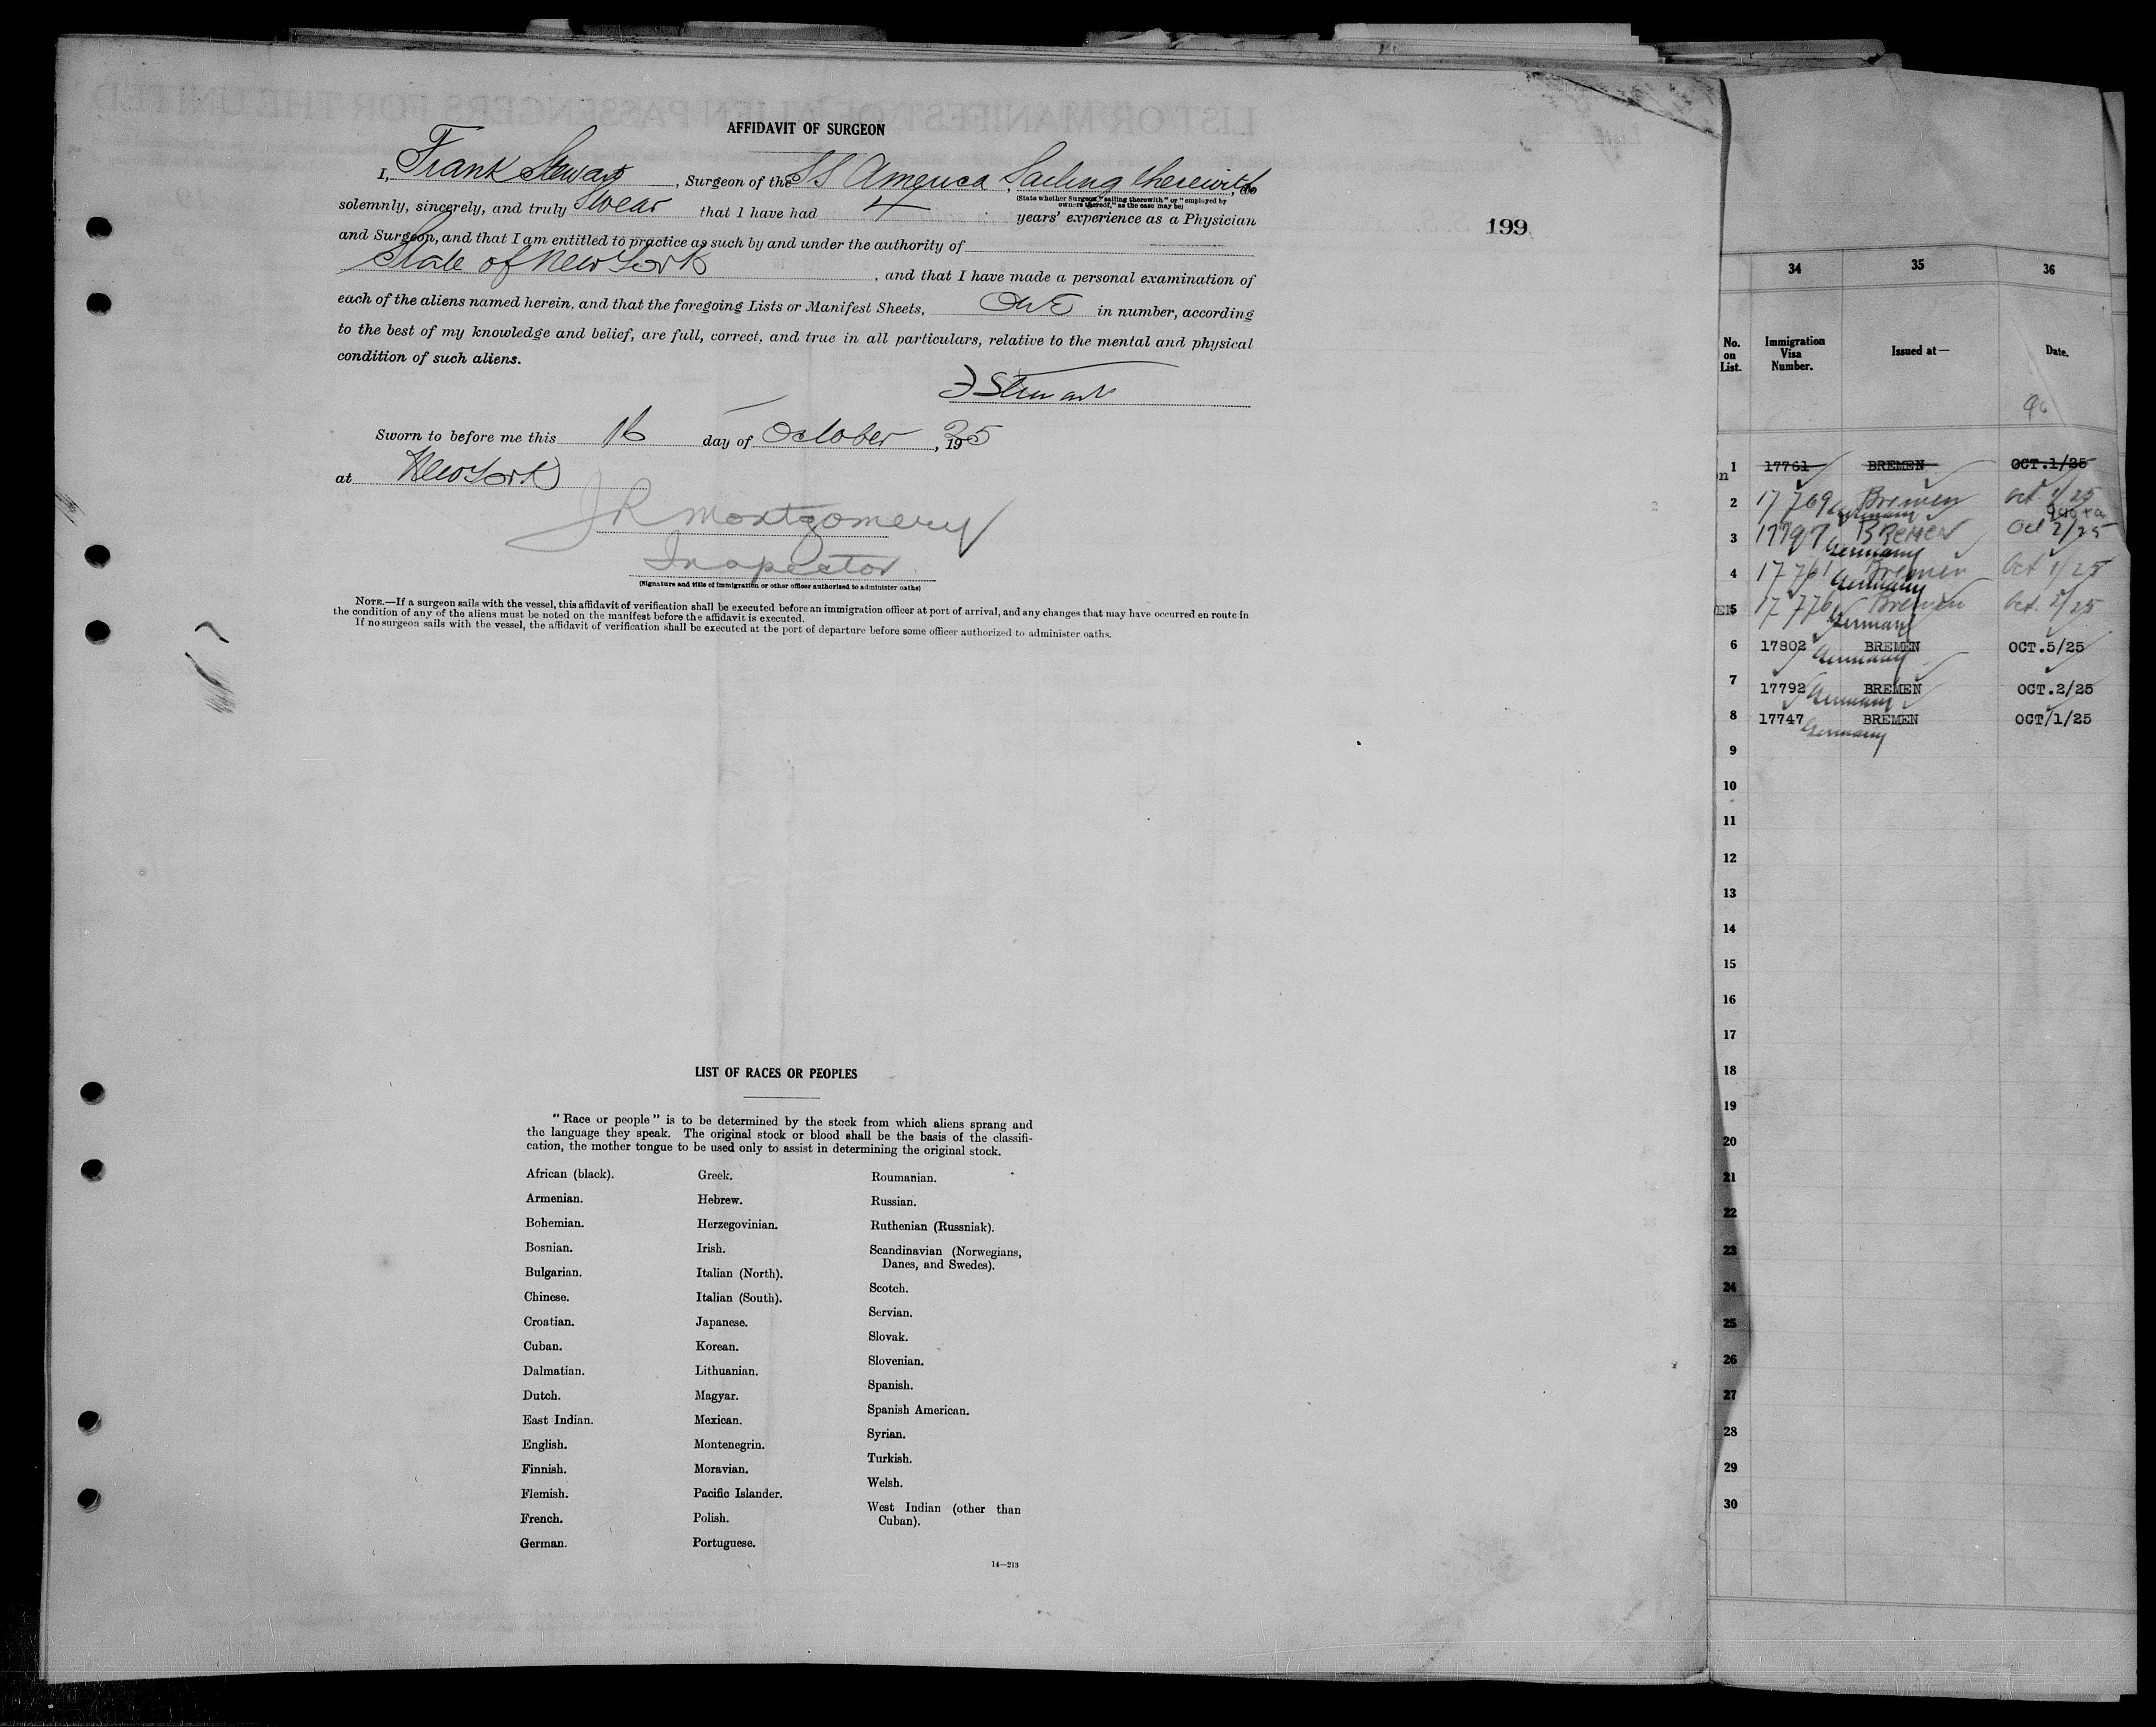 AFFIDAVIT OF SURGEON
I, Frank Stewart, Surgeon of the SS America, Sailing therewith, do
(State whether Surgeon "sailing therewith" or "employed by
owners thereof," as the case may be)
solemnly, sincerely, and truly Swear that I have had 4 years' experience as a Physician
and Surgeon, and that I am entitled to practice as such by and under the authority of
State of New York, and that I have made a personal examination of
each of the aliens named herein, and that the foregoing Lists or Manifest Sheets, One in number, according
to the best of my knowledge and belief, are full, correct, and true in all particulars, relative to the mental and physical
condition of such aliens.
F Stewart
Sworn to before me this 16 day of October, 1925
at New York
J R Montgomery
Inspector
(Signature and title of immigration or other officer authorized to administer oaths)
NOTE.—If a surgeon sails with the vessel, this affidavit of verification shall be executed before an immigration officer at port of arrival, and any changes that may have occurred en route in
the condition of any of the aliens must be noted on the manifest before the affidavit is executed.
If no surgeon sails with the vessel, the affidavit of verification shall be executed at the port of departure before some officer authorized to administer oaths.
199
LIST OF RACES OR PEOPLES
"Race or people" is to be determined by the stock from which aliens sprang and
the language they speak. The original stock or blood shall be the basis of the classifi-
cation, the mother tongue to be used only to assist in determining the original stock.
African (black).
Armenian.
Bohemian.
Bosnian.
Bulgarian.
Chinese.
Croatian.
Cuban.
Dalmatian.
Dutch.
East Indian.
English.
Finnish.
Flemish.
French.
German.
Greek.
Hebrew.
Herzegovinian.
Irish.
Italian (North).
Italian (South).
Japanese.
Korean.
Lithuanian.
Magyar.
Mexican.
Montenegrin.
Moravian.
Pacific Islander.
Polish.
Portuguese.
Roumanian.
Russian.
Ruthenian (Russniak).
Scandinavian (Norwegians,
Danes, and Swedes).
Scotch.
Servian.
Slovak.
Slovenian.
Spanish.
Spanish American.
Syrian.
Turkish.
Welsh.
West Indian (other than
Cuban).
14—213
34 35 36
No. on List. Immigration Visa Number. Issued at— Date.
1 17761 BREMEN OCT.1/25
2 17769 Bremen Oct 1/25
Germany
3 17797 Bremen Oct 2/25
Germany
4 17761 Bremen Oct 1/25
Germany
5 17776 Bremen Oct. 2/25
Germany
6 17802 BREMEN OCT.5/25
Germany
7 17792 BREMEN OCT.2/25
Germany
8 17747 BREMEN OCT/1/25
Germany
9
10
11
12
13
14
15
16
17
18
19
20
21
22
23
24
25
26
27
28
29
30